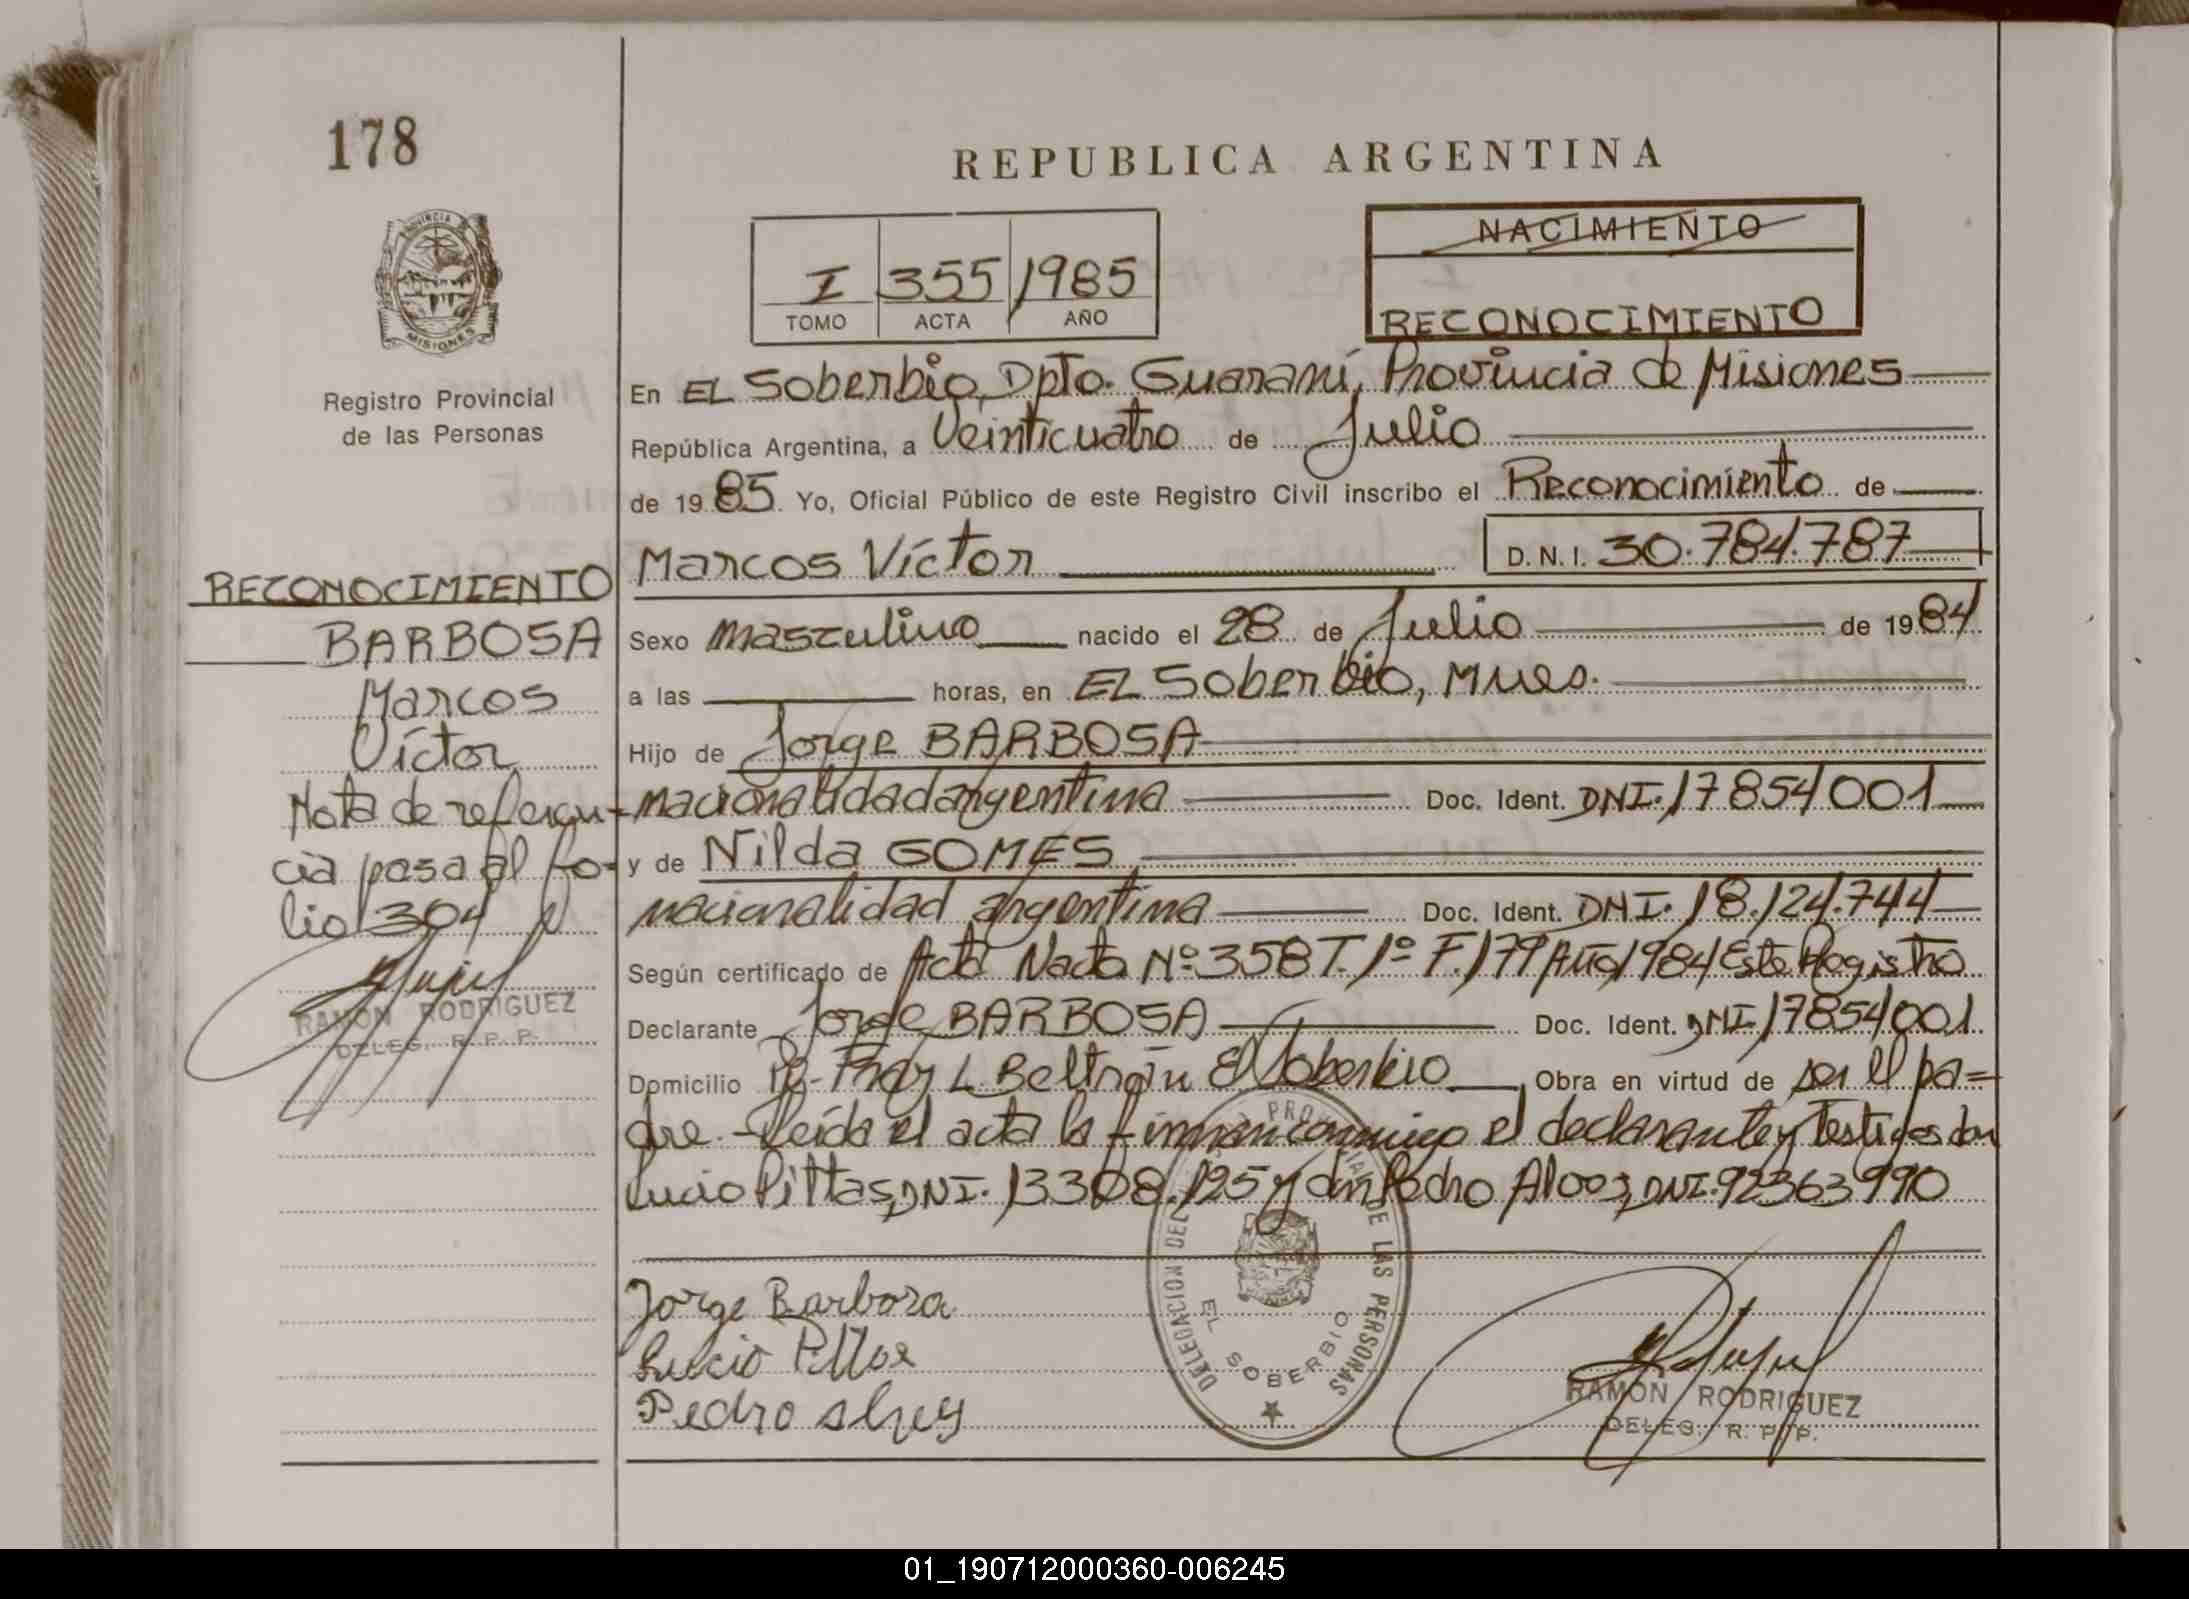 178
REPUBLICA ARGENTINA
PROVINCIA
MISIONES
Registro Provincial
de las Personas
I 355 1985
TOMO ACTA AÑO
NACIMIENTO
RECONOCIMIENTO
En EL Soberbio, Dpto. Guaraní, Provincia de Misiones
República Argentina, a Veinticuatro de Julio
de 1985. Yo, Oficial Público de este Registro Civil inscribo el Reconocimiento de
Marcos Víctor D.N.I. 30.784.787
Sexo masculino nacido el 28 de Julio de 1984
a las horas, en EL Soberbio, Mnes.
Hijo de Jorge BARBOSA
nacionalidad argentina Doc. Ident. DNI. 17854001
y de Nilda GOMES
nacionalidad argentina Doc. Ident. DNI. 18.124.744
Según certificado de Acta Nacto Nº 358 T. 1º F. 179 Año 1984 Este Registro
Declarante Jorge BARBOSA Doc. Ident. DNI 17854001
Domicilio Fray L. Beltrán El Soberbio, Obra en virtud de ser el pa=
dre.- Leída el acta la firman conmigo el declarante y testigos don
Lucio Pittas, DNI. 13308.125 y don Pedro DNI. 92363990
Jorge Barbosa
Lucio
Pedro
DELEGACION DEL PROVINCIAL DE LAS PERSONAS
EL SOBERBIO
RAMON RODRIGUEZ
DELEG. R. P. P.
RECONOCIMIENTO
BARBOSA
Marcos
Víctor
Nota de referen-
cia pasa al fo-
lio 304
RAMON RODRIGUEZ
DELEG. R. P. P.
01_190712000360-006245